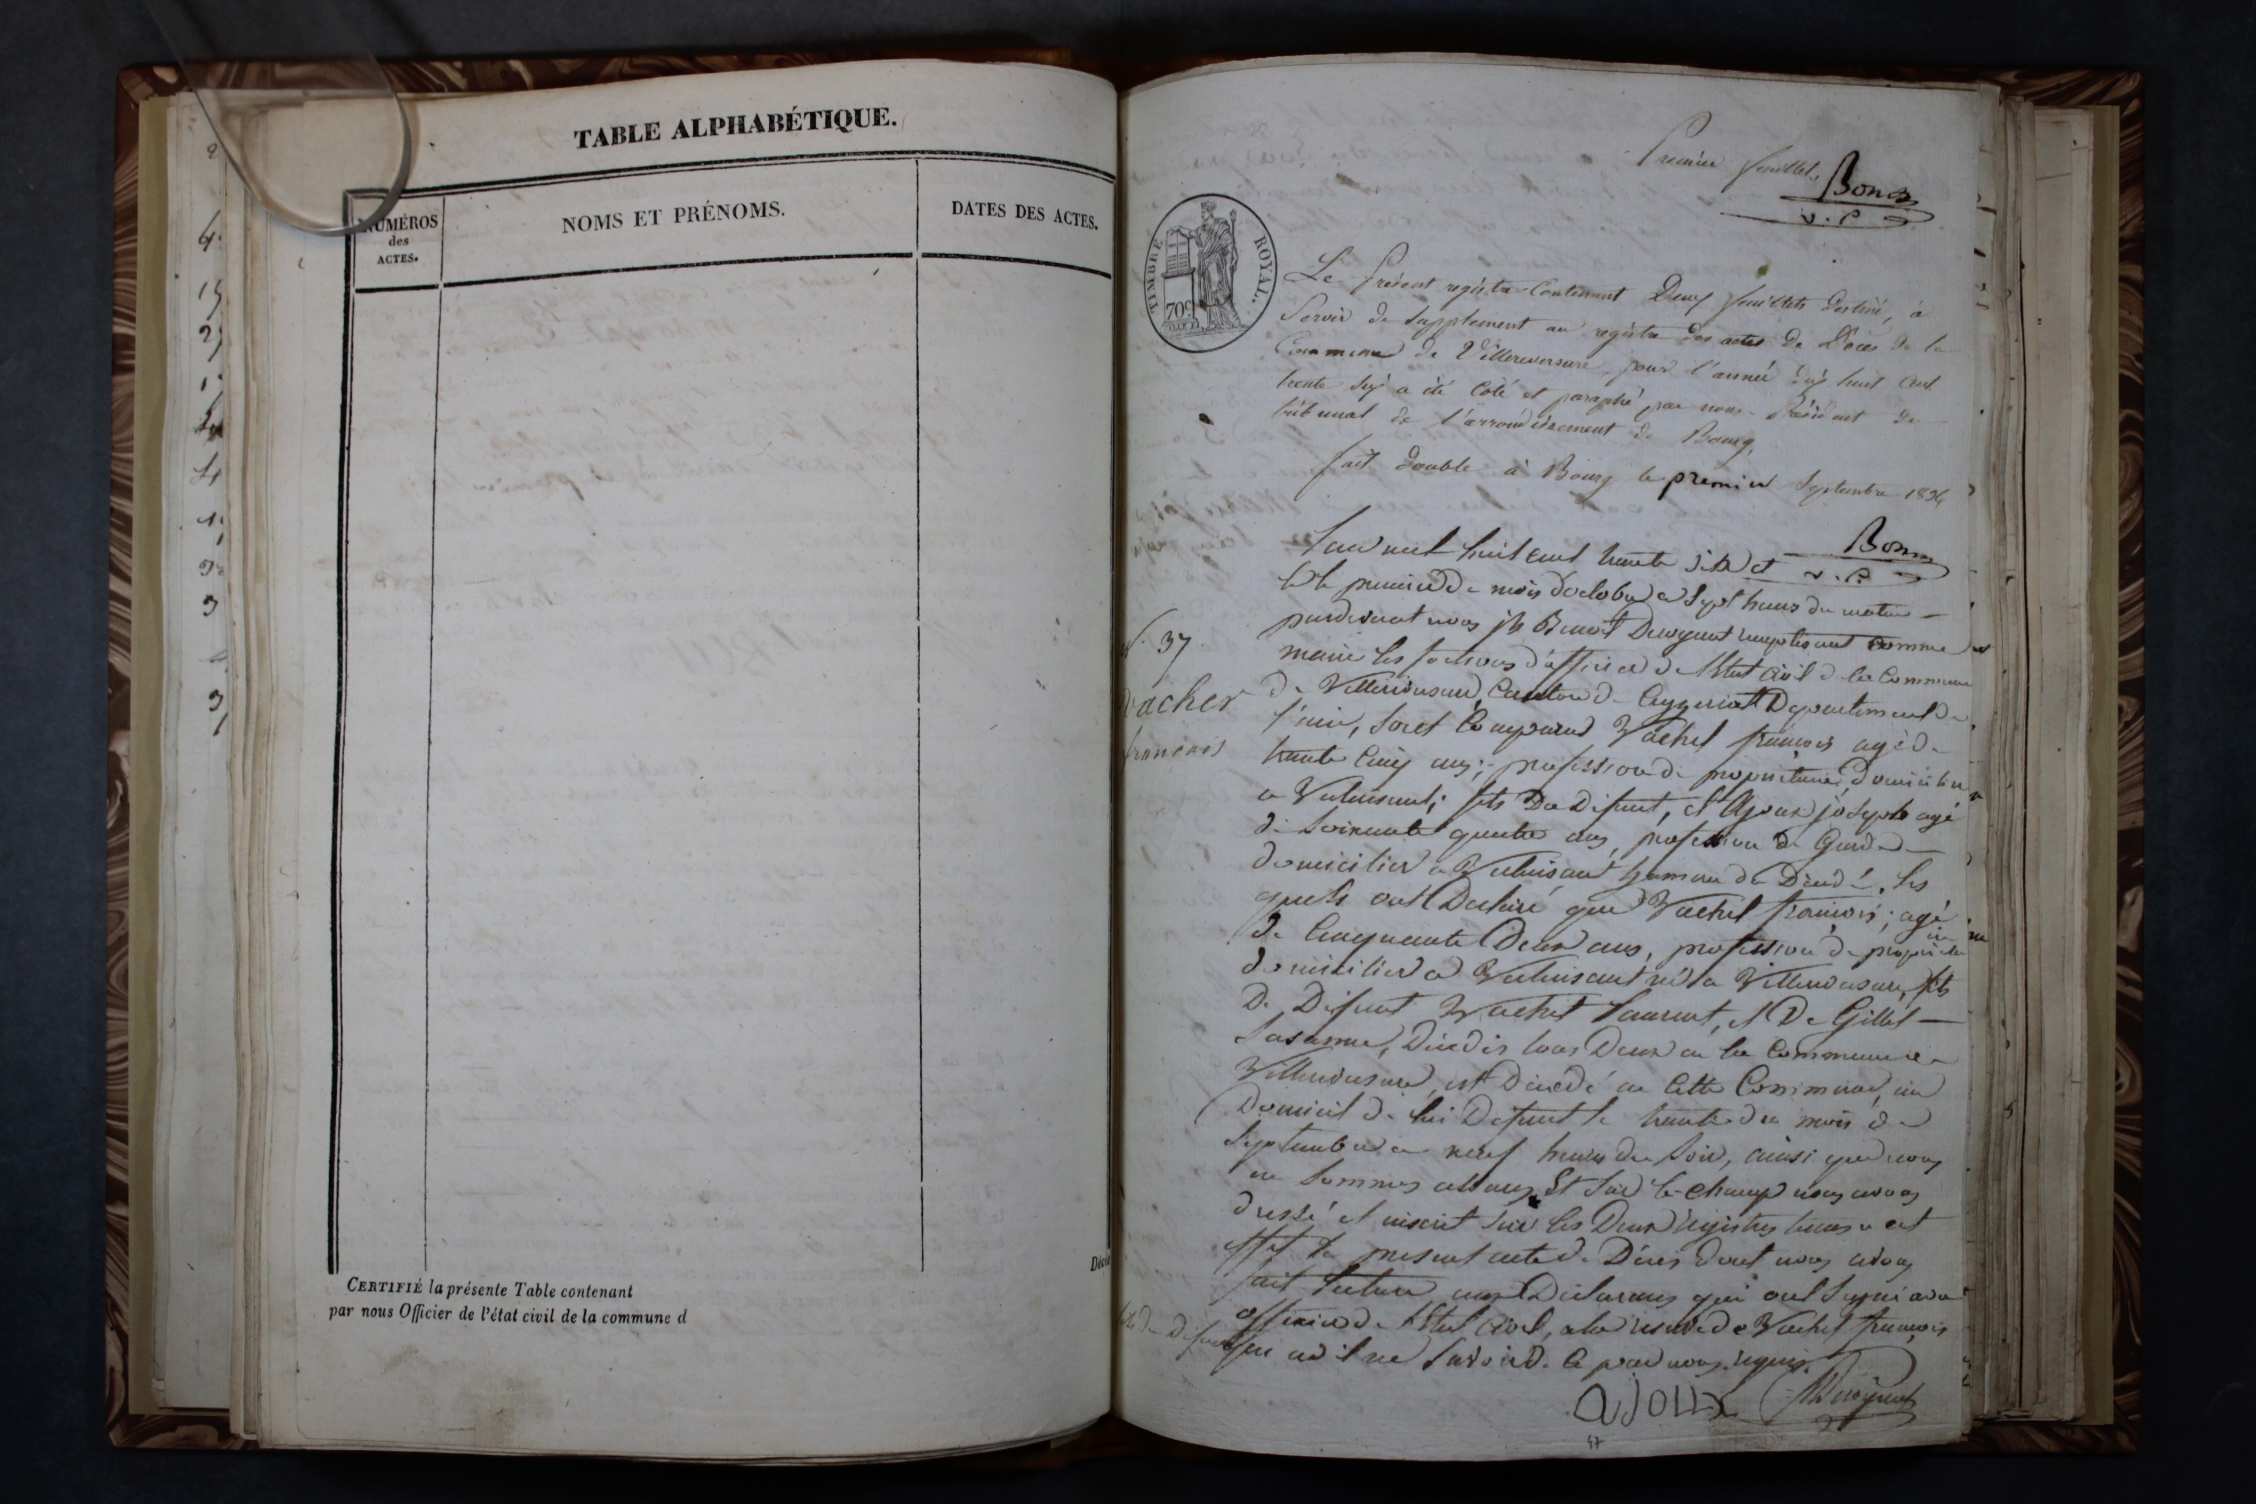 TABLE ALPHABÉTIQUE.
NUMÉROS
des
ACTES.
NOMS ET PRÉNOMS.
DATES DES ACTES.
CERTIFIÉ la présente Table contenant
par nous Officier de l'état civil de la commune d
Premier feuillet,
Bon
v. P
TIMBRE ROYAL.
70c
Le présent registre contenant Deux feuillets destiné, à
Servir de Supplement au registre des actes de Décès de la
Commune de Villereversure pour l'année dix huit cent
trente six a été Coté et paraphé par nous Président du
tribunal de l'arrondissement de Bourg,
fait double à Bourg le premier Septembre 1836
Bon
v. P.
L'an mil huit cent trente six et
le premier du mois d'octobre a Sept heures du matin
pardevant nous Benoit remplissant comme
maire les d'officier de l'Etat Civil de la Commune
de Villereversure, Canton de Ceyzeriat Departement de
l'ain, Sont Comparus Vachet françois agé de
trente Cinq ans; profession de propriétaire, domicilier
a fils Du Défunt, et Ajoux joseph agé
de Soixante quatre ans, profession de Garde
domicilier a hameau de les
quels ont Déclaré que Vachet françois; agé
de Cinquante Deux ans, profession de propriétaire
domicilier a né a Villereversure, fils
De Défunt Vachet Laurent, et De Gillet
Susanne, Décédés tous Deux en la Commune de
Villereversure, est Décédé en Cette Commune, au
Domicil de lui Défunt le trente du mois de
Septembre a neuf heures du Soir, ainsi que nous
nous Sommes assurés Et Sur le-Champ nous avons
dressé et inscrit sur les Deux registres tenus a cet
effet le present acte de Décès dont nous avons
fait lecture aux Déclarans qui ont Signé avec
officier de l'Etat Civil, a la reserve de Vachet françois
fils du Défunt qui a dit ne Savoir de ce par nous requis.
N. 37
Vacher
francois
AJOUX
47